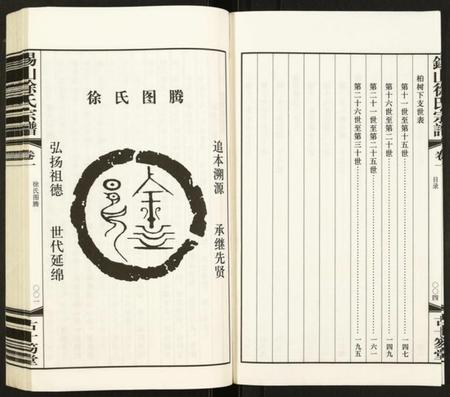 柏树下支世表
第十一世至第十五世……一四七
第十六世至第二十世……一四九
第二十一世至第二十五世……一六一
第二十六世至第三十世……一九五
錫山徐氏宗譜
卷一
目录
〇〇四
古十笏堂
徐氏图腾
追本溯源
承继先贤
弘扬祖德
世代延绵
錫山徐氏宗譜
卷一
徐氏图腾
〇〇一
古十笏堂